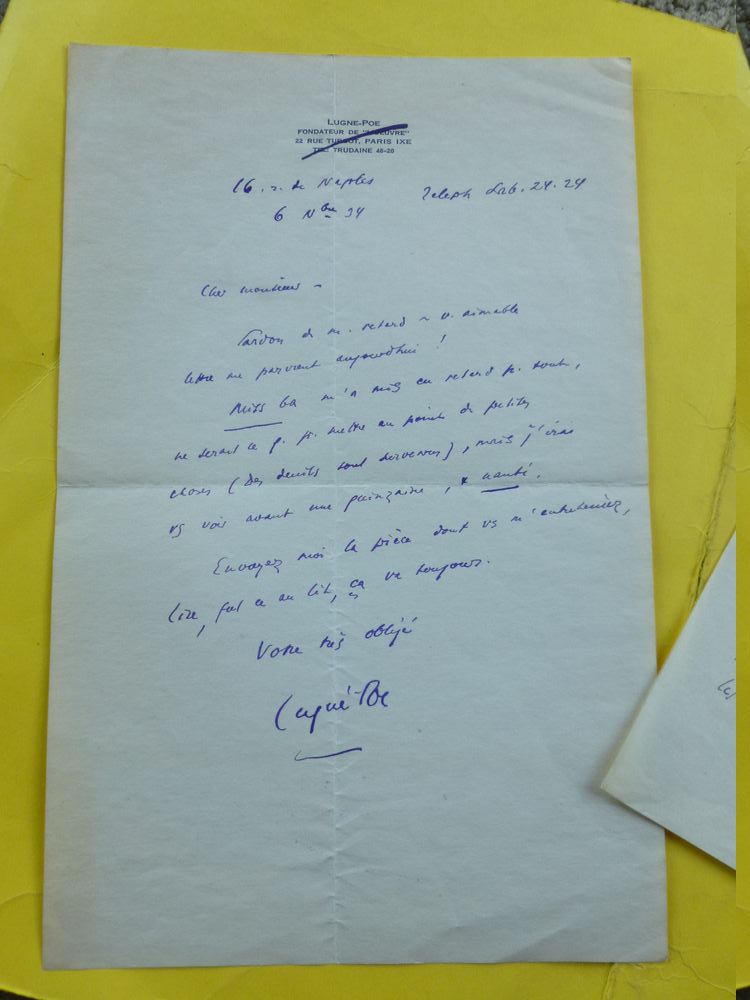 LUGNE-POE
FONDATEUR DE "L'ŒUVRE"
22 RUE TURGOT, PARIS IXE
TEL: TRUDAINE 48-20
16. r. de Naples Teleph Lab. 24.24
6 Nbre 34
Cher monsieur ~
Pardon de m. retard ~ v. aimable
lettre me parvient aujourd'hui !
Miss ba m'a mis en retard pr. tout,
ne serait ce q. pr. mettre au point de petites
choses (Des deuils sont survenus), mais j'irai
vs voir avant une quinzaine,
Envoyez moi la pièce dont vs m'entreteniez,
lire, fut ce au lit, ça va toujours.
Votre très obligé
Lugné-Poe